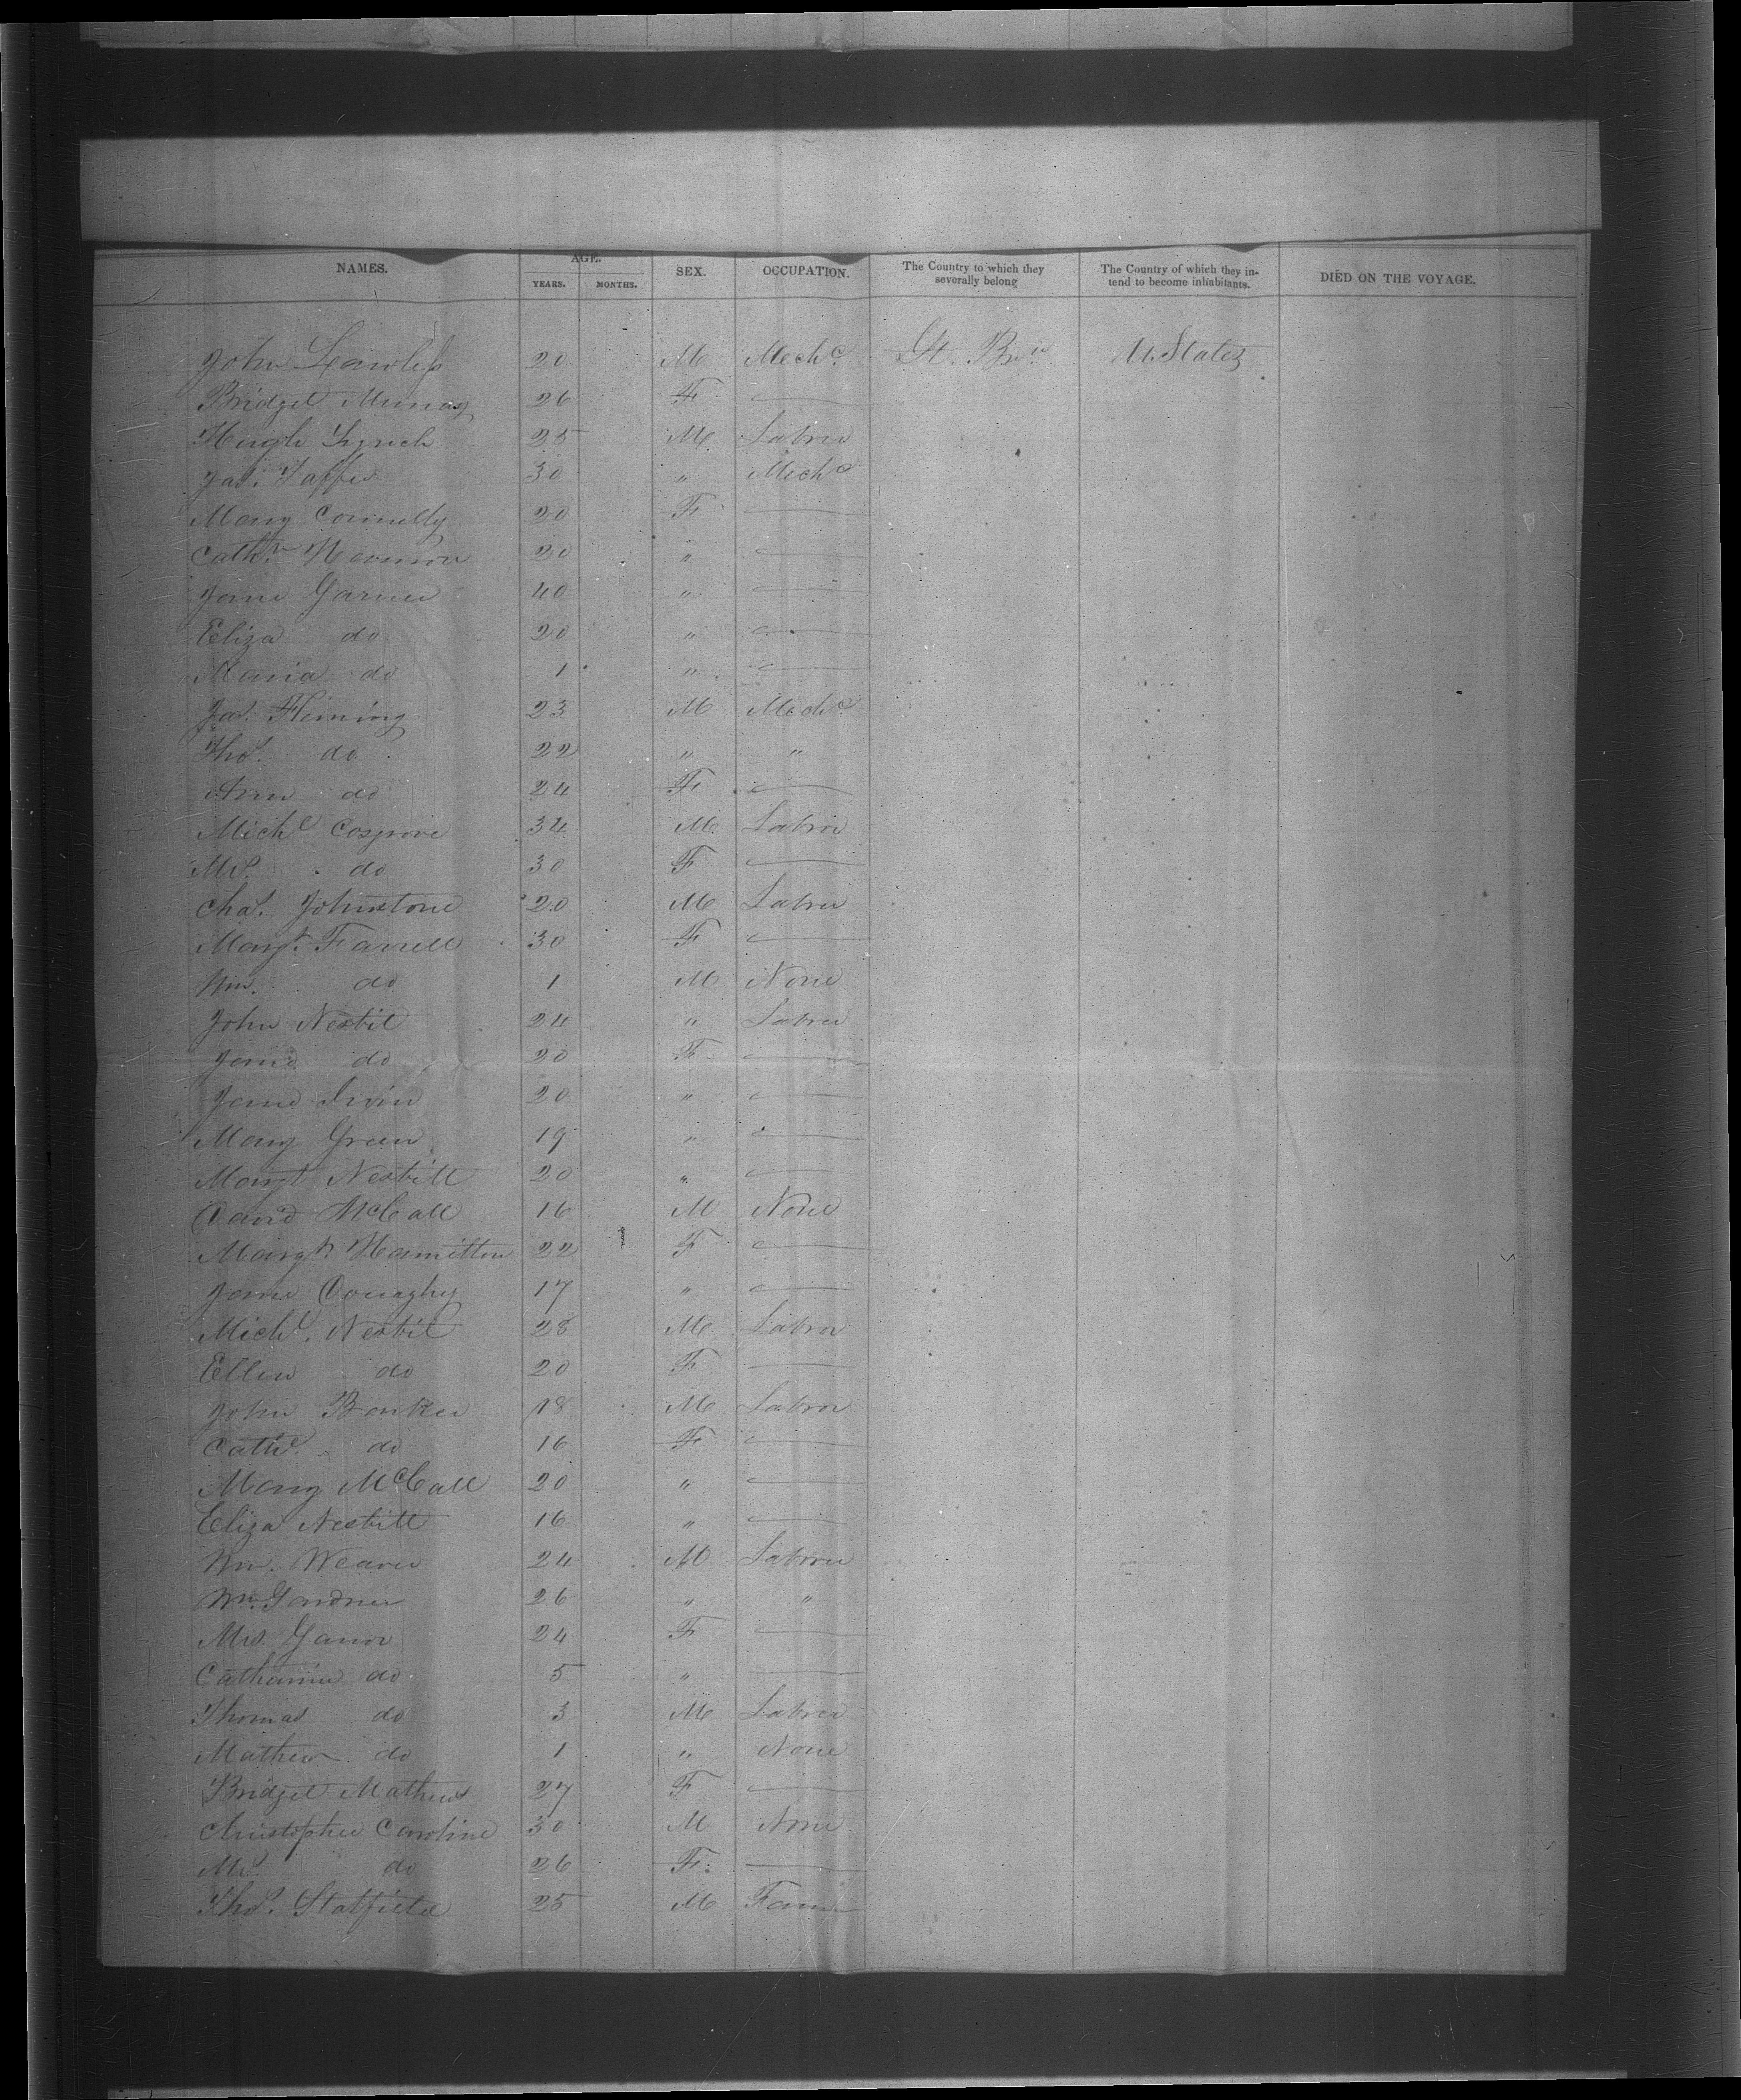 NAMES. AGE. YEARS. MONTHS. SEX. OCCUPATION. The Country to which they severally belong The Country of which they intend to become inhabitants. DIED ON THE VOYAGE.
John Lawless 20 M Mech.c Gt. Brn. U. States
Bridget 26 F —
Hugh Lynch 25 M Labrer
Jas. Taffee 30 " Mech.c
Mary Connelly 20 F —
Cath.n 20 " —
Jane Garner 40 " —
Eliza do 20 " —
Maria do 1 " —
Jas. Fleming 23 M Mech.c
Thos. do 22 " "
Ann do 24 F —
Michl Cosgrove 34 M Labror
Mrs. do 30 F —
Chas. Johnstone 20 M Labrer
Margt. Farrell 30 F —
Wm. do 1 M None
John Nesbit 24 " Labrer
Jane do 20 F —
Jane Irvin 20 " —
Mary Green 19 " —
Margt Nesbitt 20 " —
David McCall 16 M None
Margt. Hamilton 22 F —
Jane Donaghy 17 " —
Michl. Nesbit 28 M Labror
Ellen do 20 F —
John 18 M Labror
Cathe. do 16 F —
Mary McCall 20 " —
Eliza Nesbitt 16 " —
Wm. Weaver 24 M Labrer
Wm. Gardner 26 " "
Mrs. Ganor 24 F —
Catharine do 5 " —
Thomas do 3 M Labrer
Mathew do 1 " None
Bridget Mathews 27 F —
Christopher Caroline 30 M None
Mrs. do 26 F —
Thos. Statfield 25 M Farmer